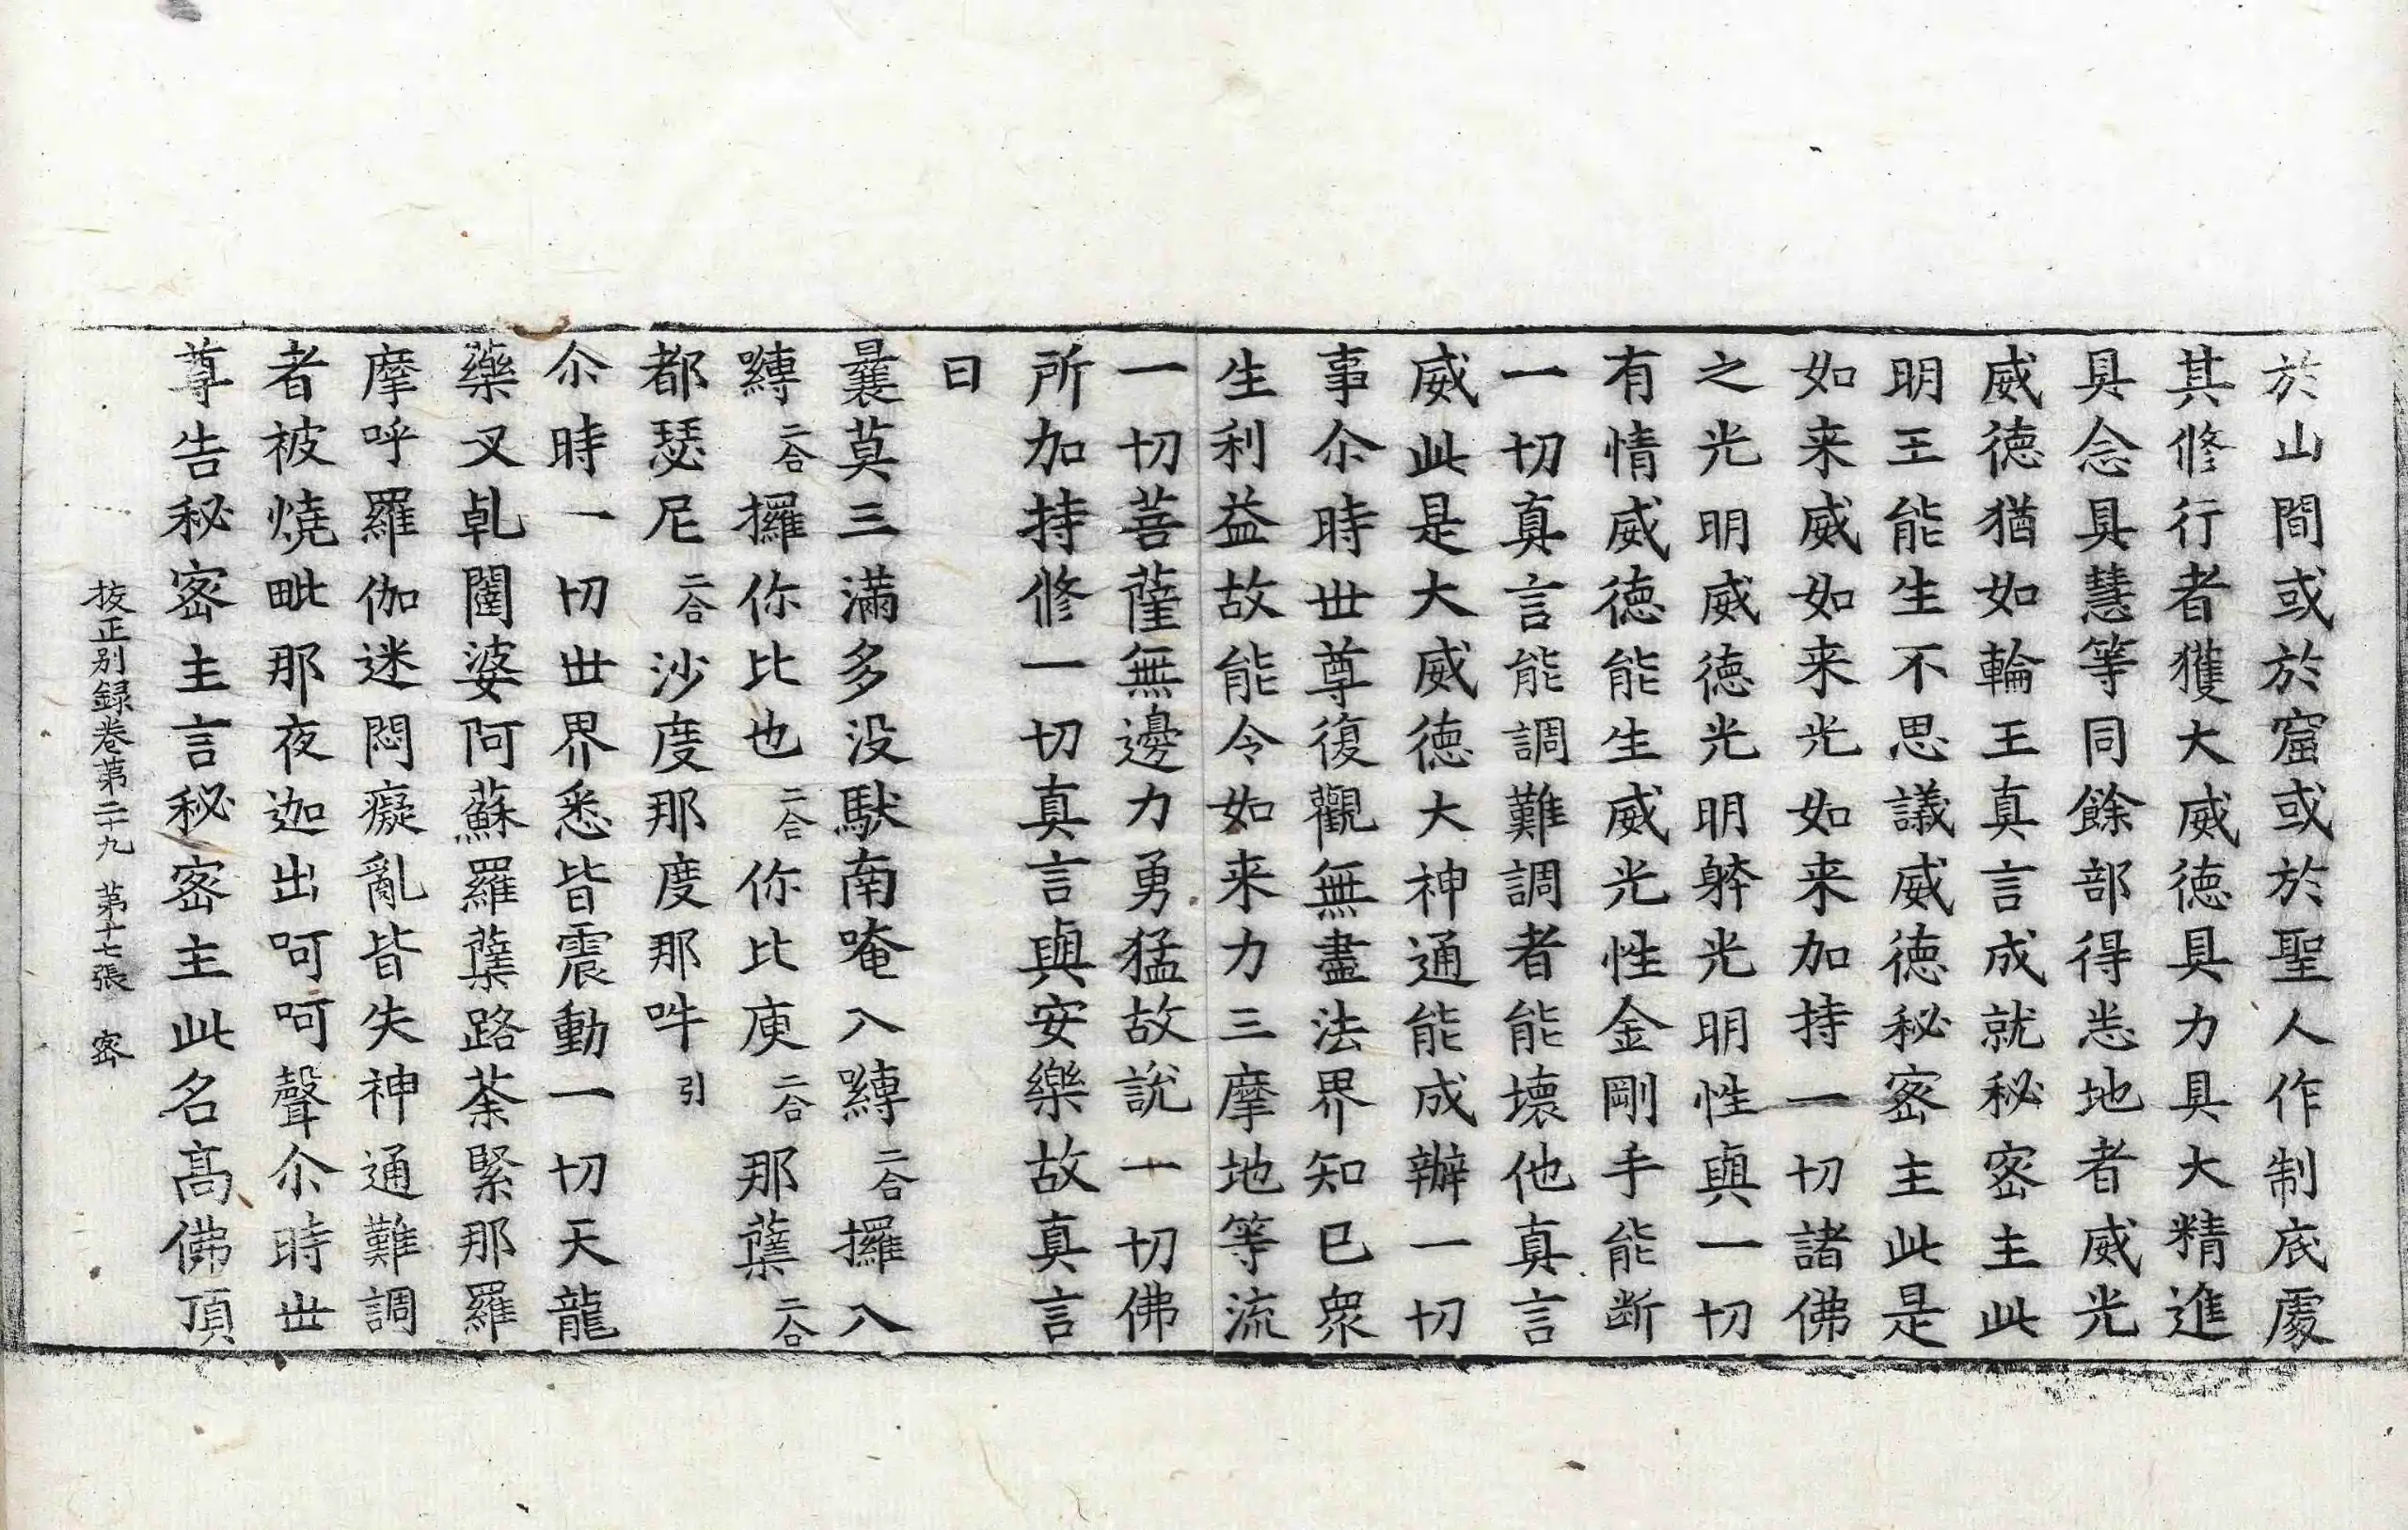 於山間或於窟或於聖人作制底處
其修行者獲大威徳具力具大精進
具念具慧等同餘部得悉地者威光
威徳猶如輪王真言成就秘密主此
明王能生不思議威徳秘密主此是
如来威如来光如来加持一切諸佛
之光明威徳光明躰光明性與一切
有情威徳能生威光性金剛手能断
一切真言能調難調者能壞他真言
威此是大威徳大神通能成辦一切
事尒時世尊復觀無盡法界知已衆
生利益故能令如来力三摩地等流
一切菩薩無邊力勇猛故說一切佛
所加持修一切真言與安樂故真言
曰
曩莫三滿多没馱南唵入嚩二合攞入
嚩二合攞你比也二合你比庾二合那蘖二合
都瑟尼二合沙度那度那吽引
尒時一切世界悉皆震動一切天龍
藥叉乹闥婆阿蘇羅蘖路荼緊那羅
摩呼羅伽迷悶癡亂皆失神通難調
者被燒毗那夜迦出呵呵聲尒時世
尊告秘密主言秘密主此名髙佛頂
挍正别録卷第二十九 第十七張 密